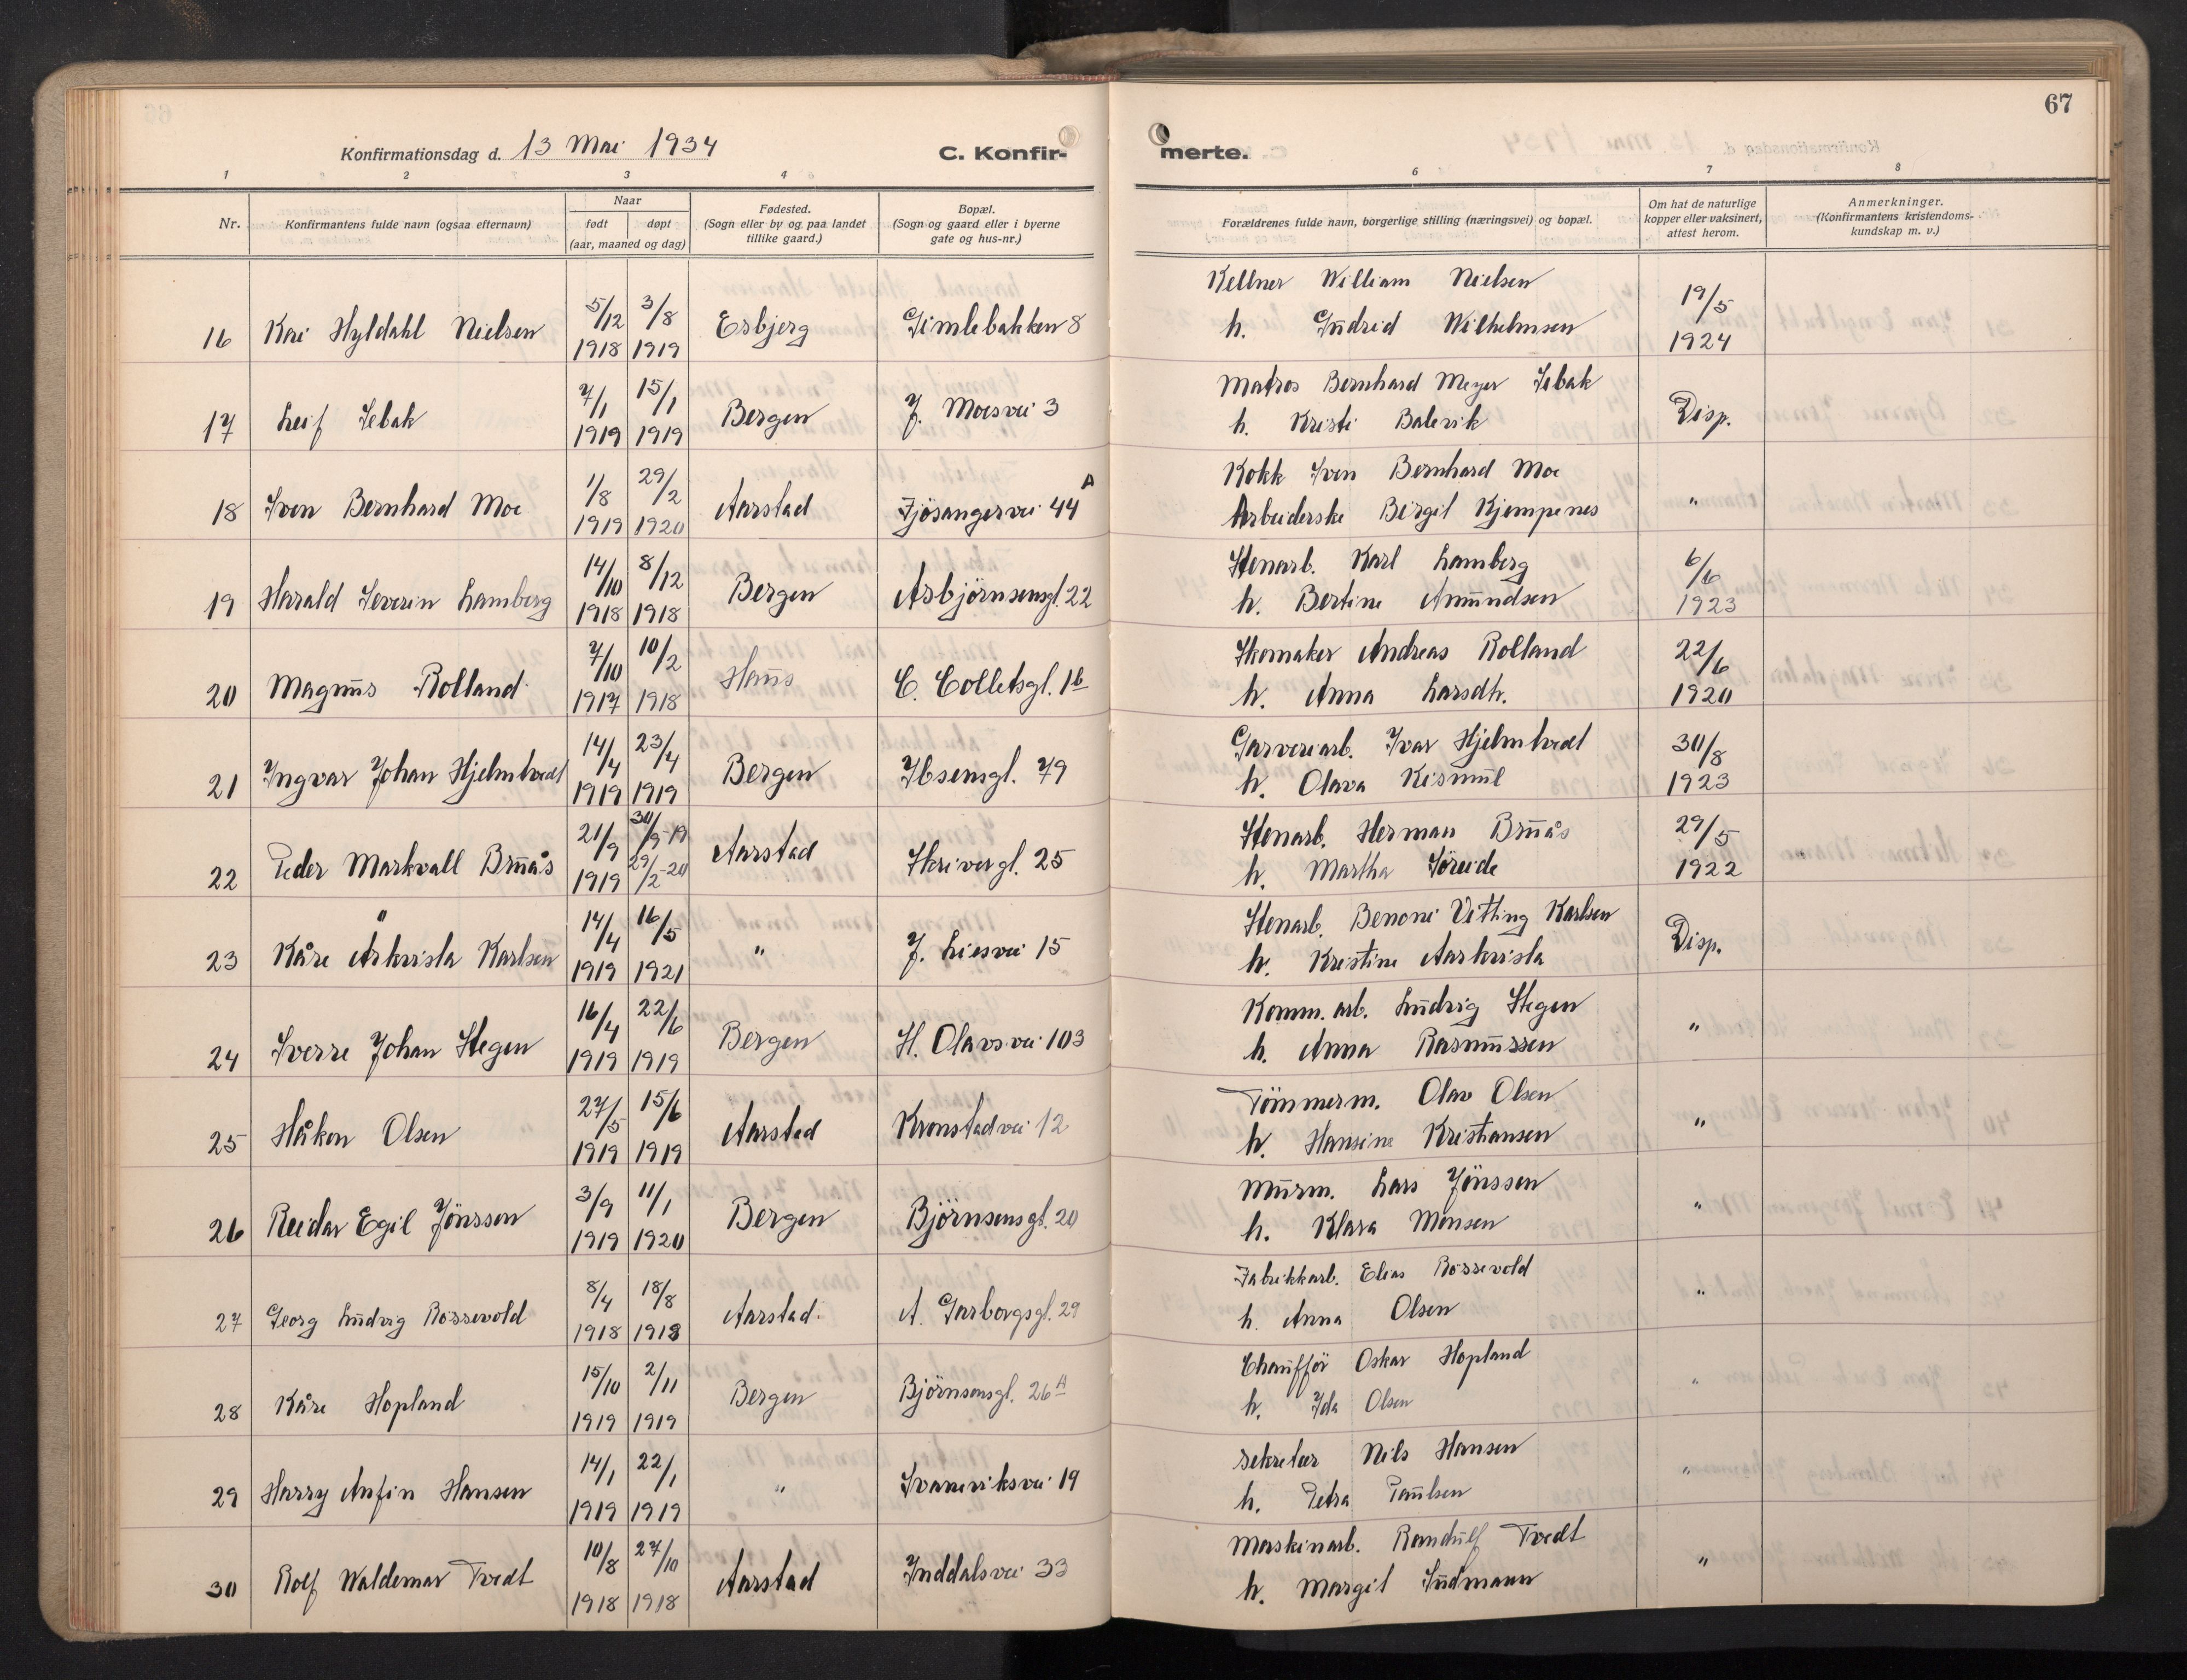 67
Konfirmationsdag d. 13 Mai 1934
C. Konfirmerte.
1 2 3 4 6 7 8
Nr.
Konfirmantens fulde navn (ogsaa efternavn)
Naar
født døpt
(aar, maaned og dag)
Fødested.
(Sogn eller by og paa landet
tillike gaard.)
Bopæl.
(Sogn og gaard eller i byerne
gate og hus-nr.)
Forældrenes fulde navn, borgerlige stilling (næringsvei) og bopæl.
Om hat de naturlige
kopper eller vaksinert,
attest herom.
Anmerkninger.
(Konfirmantens kristendoms-
kundskap m. v.)
Kellner William Nielsen
16 Kai Hyldahl Nielsen 5/12 1918 3/8 1919 Esbjerg Gimlebakken 8 h. Gudrid Wilhelmsen 19/5 1924
Matros Bernhard Meyer Sebak
17 Leif Sebak 7/1 1919 15/1 1919 Bergen J. Moesvei 3 h. Kristi Balevik Disp.
Kokk Sven Bernhard Moe
18 Sven Bernhard Moe 1/8 1919 29/2 1920 Aarstad Fjøsangervei 44 A Arbeiderske Birgit Kjempenes "
Stenarb. Karl Lamberg
19 Harald Severin Lamberg 14/10 1918 8/12 1918 Bergen Asbjørnsensgt. 22 h. Bertine Amundsen 6/6 1923
Skomaker Andreas Rolland
20 Magnus Rolland 7/10 1917 10/2 1918 Haus C. Colletsgt. 1b h. Anna Larsdtr. 22/6 1920
Garveriarb. Ivar Hjelmtvedt
21 Ingvar Johan Hjelmtvedt 14/4 1919 23/4 1919 Bergen Ibsensgt. 79 h. Olava Kismul 30/8 1923
Stenarb. Herman Bruås
22 Peder Markvall Bruås 21/9 1919 30/9-19 29/2-20 Aarstad Skivergt. 25 h. Martha Søreide 29/5 1922
Stenarb. Benoni Vitting Karlsen
23 Kåre Årkvisla Karlsen 14/4 1919 16/5 1921 " J. Liesvei 15 h. Kristine Aarkvisla Disp.
Komm. arb. Ludvig Stegen
24 Sverre Johan Stegen 16/4 1919 22/6 1919 Bergen St. Olavsvei 103 h. Anna Rasmussen "
Tömmerm. Olav Olsen
25 Håkon Olsen 27/5 1919 15/6 1919 Aarstad Kronstadvei 12 h. Hansine Kristiansen "
Murm. Lars Jönssen
26 Reidar Egil Jönssen 3/9 1919 11/1 1920 Bergen Björnsensgt. 20 h. Klara Monsen "
Fabrikkarb. Elias Røssevold
27 Georg Ludvig Røssevold 8/4 1918 18/8 1918 Aarstad. A. Garborgsgt. 29 h. Anna Olsen "
Chaufför Oskar Hopland
28 Kåre Hopland 15/10 1919 2/11 1919 Bergen Björnsensgt. 26 A h. Ida Olsen "
Sekretær Nils Hansen
29 Harry Anfin Hansen 14/1 1919 22/1 1919 " Svaneviksvei 19 h. Petra Paulsen "
Maskinarb. Randulf Tvedt
30 Rolf Waldemar Tvedt 10/8 1918 27/10 1918 Aarstad Inddalsvei 33 h. Margit Sudmann "